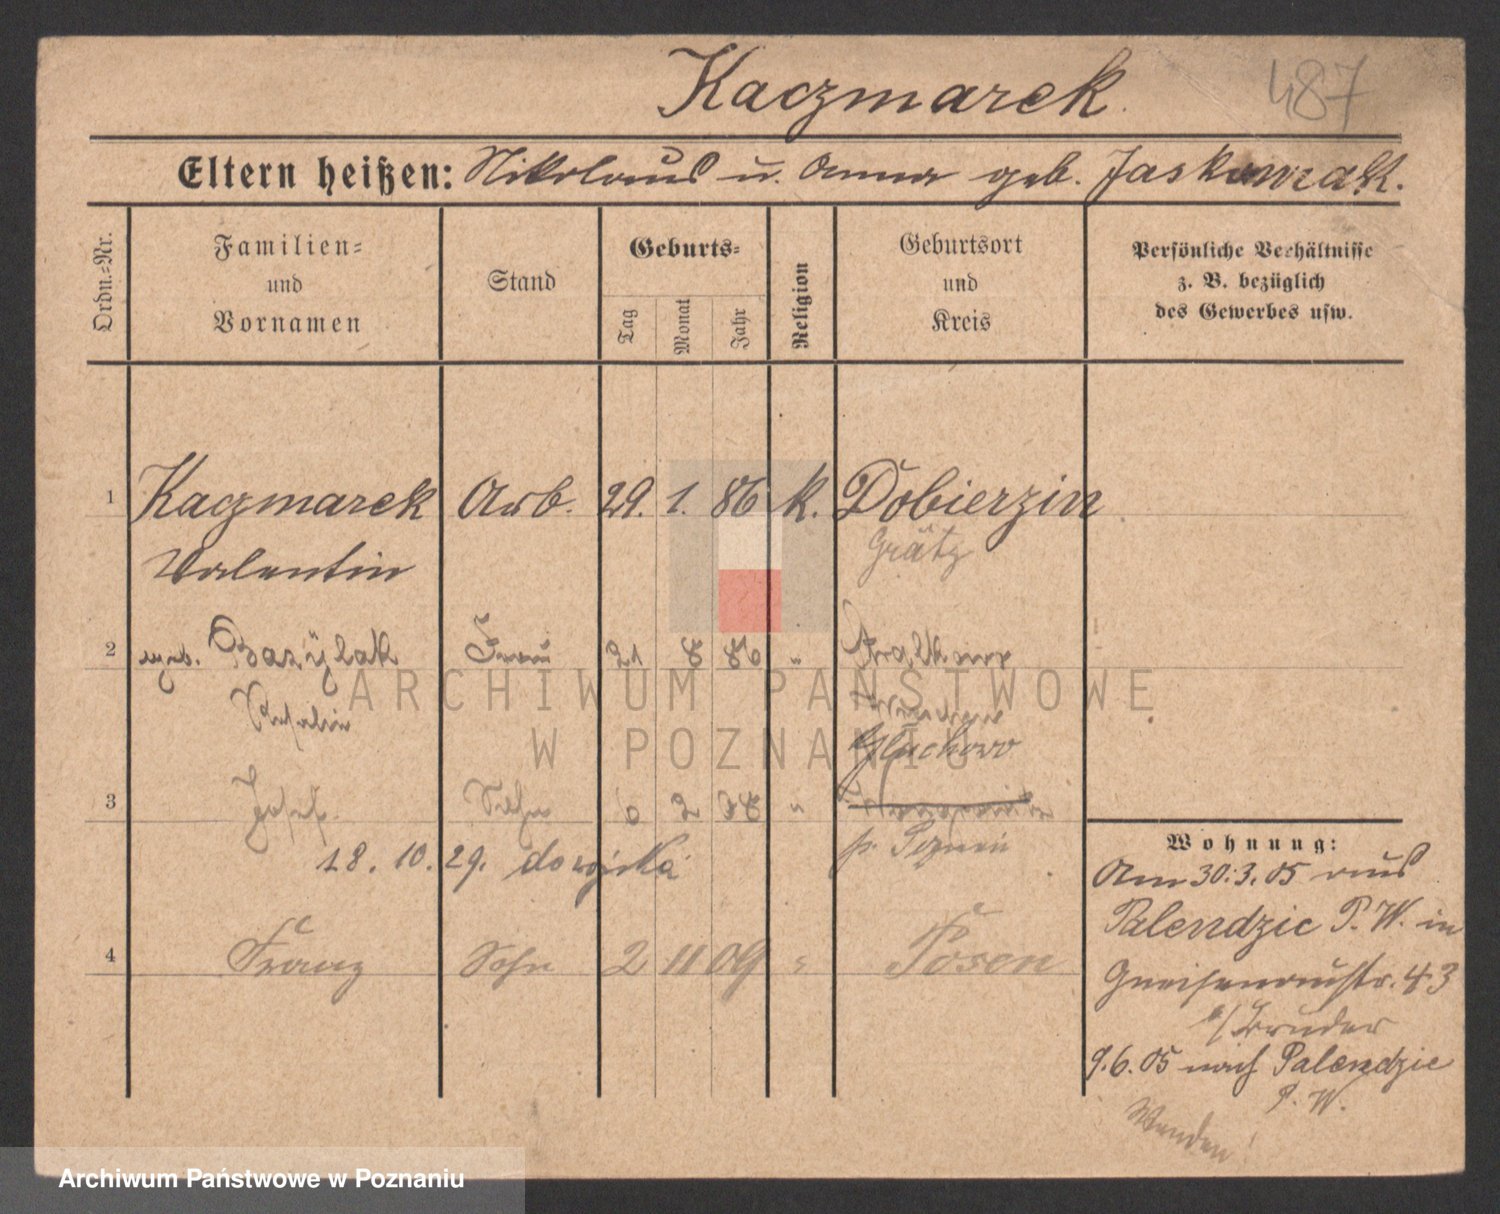 Kaczmarek
487
Eltern heißen: Nikolaus u. Anna geb. Jaskowiak.
Ordn.=Nr.
Familien=
und
Vornamen
Stand
Geburts=
Tag
Monat
Jahr
Religion
Geburtsort
und
Kreis
Persönliche Verhältnisse
z. B. bezüglich
des Gewerbes usw.
1 Kaczmarek Arb. 29. 1. 86 k. Dobierzin
Valentin Grätz
2 geb. Bazÿlak Frau 21 8 86 "
ARCHIWUM PAŃSTWOWE
W POZNANIU
Gluchowo
3 Josef. Sohn 6 2 "
18. 10. 29.
Wohnung:
Am 30.3.05 aus
Palendzie P. W. in
Gneisenaustr. 43
b/Bruder
9.6.05 nach Palendzie
P. W.
Wenden!
4 Franz Sohn 2 11 09 " Posen
Archiwum Państwowe w Poznaniu